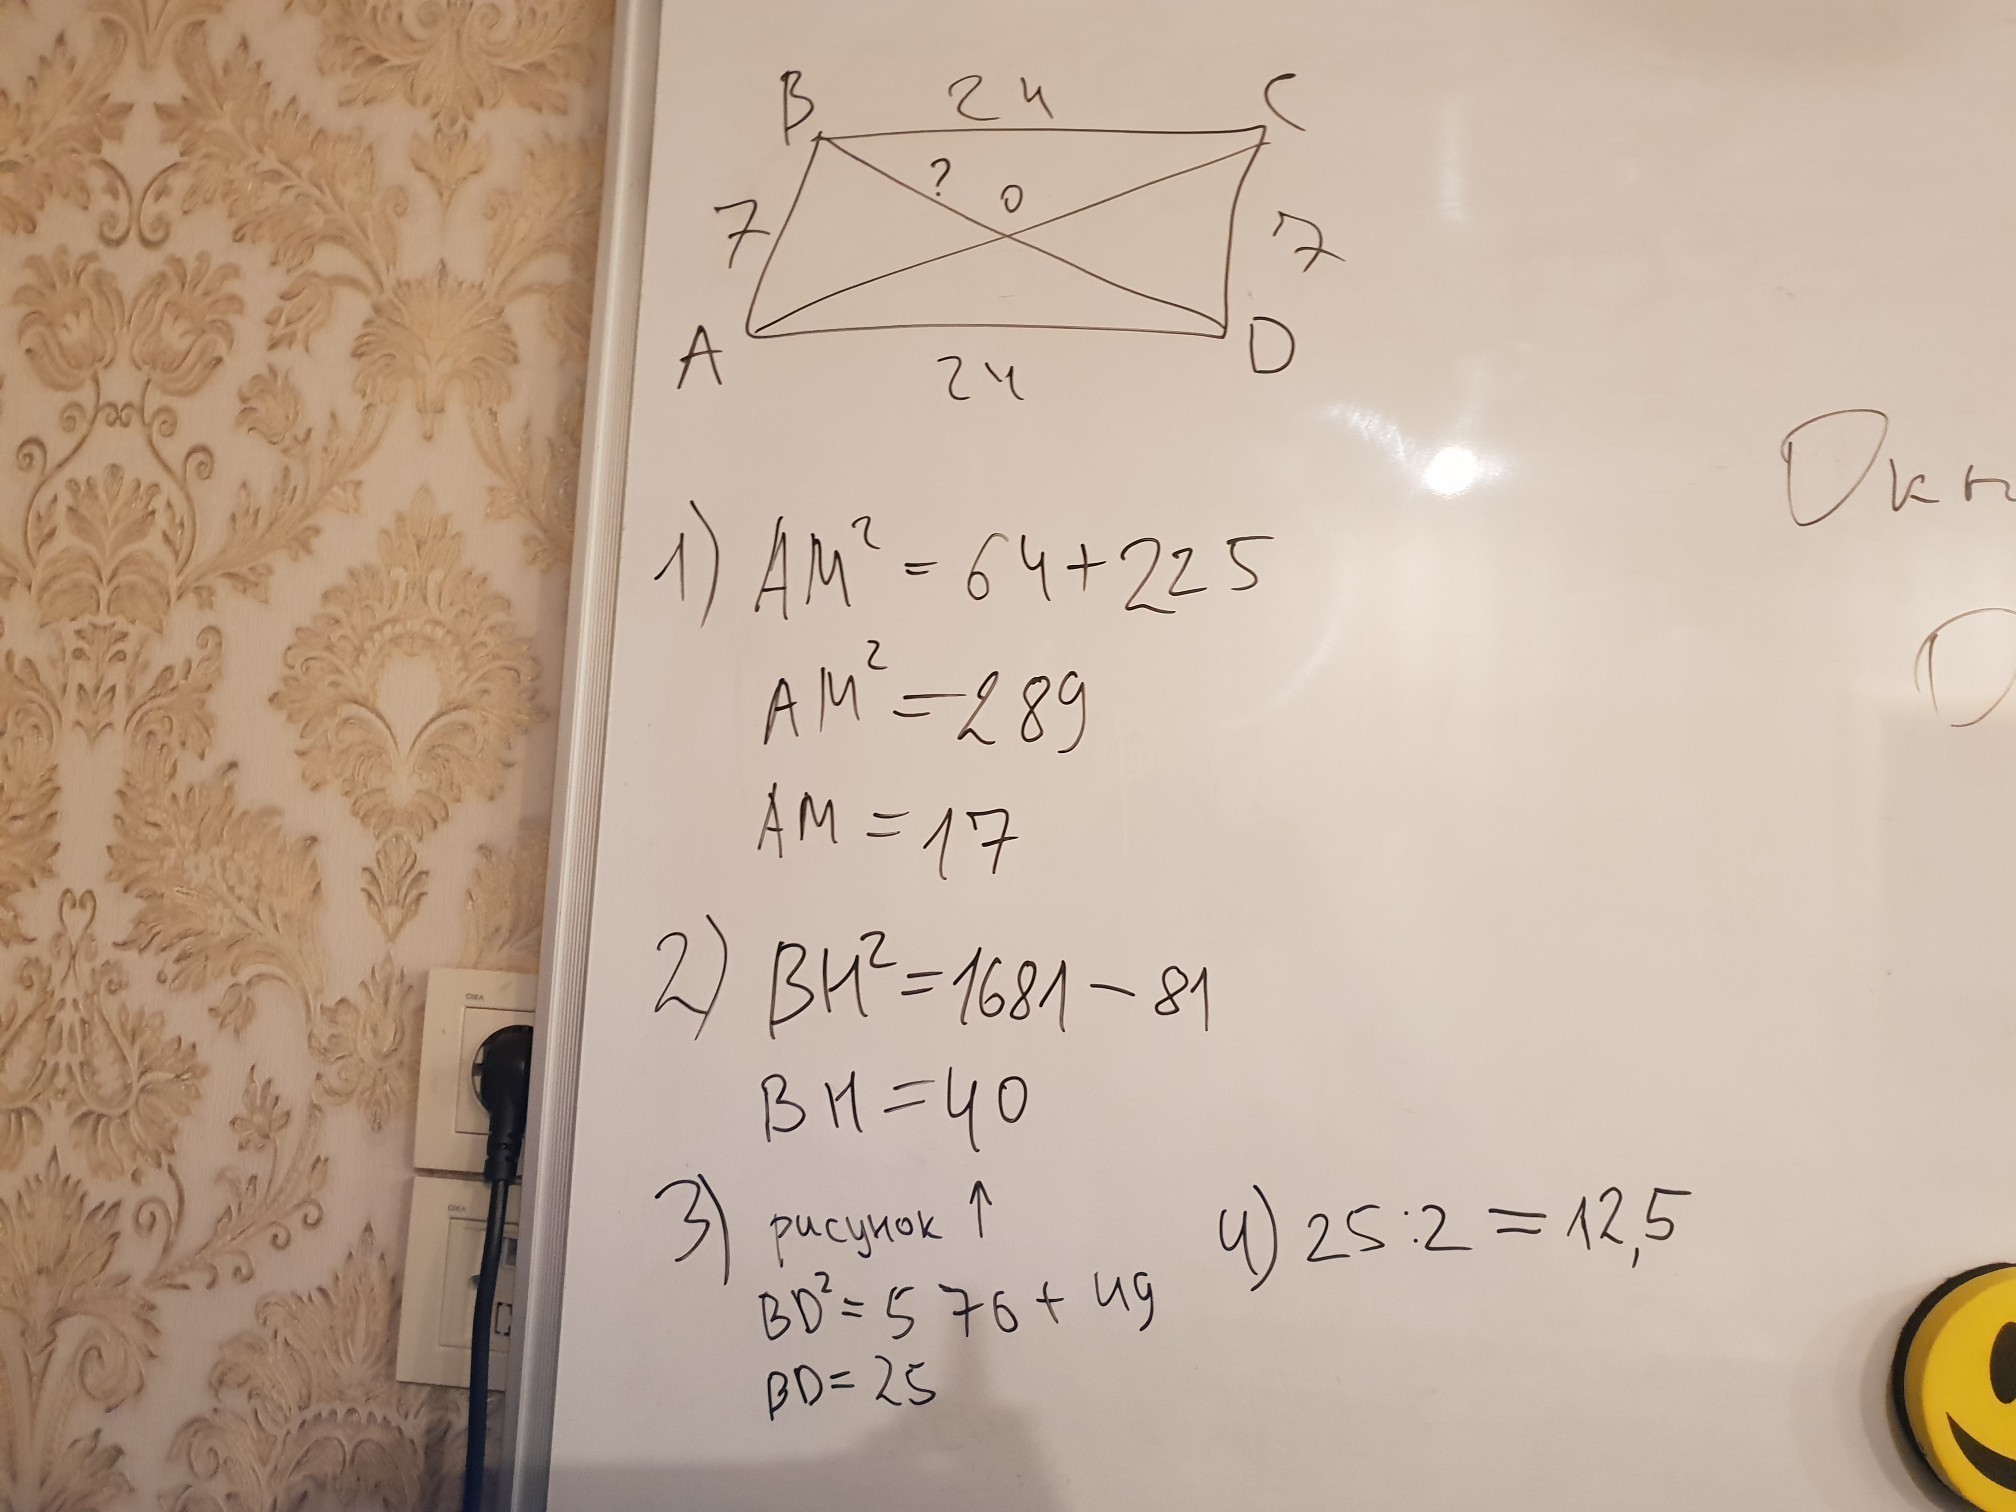 B 24 C
? O
7 7
A D
24
1) AM² = 64 + 225
AM² = 289
AM = 17
2) BH² = 1681 - 81
BH = 40
3) рисунок ↑
BD² = 576 + 49
BD = 25
4) 25:2 = 12,5